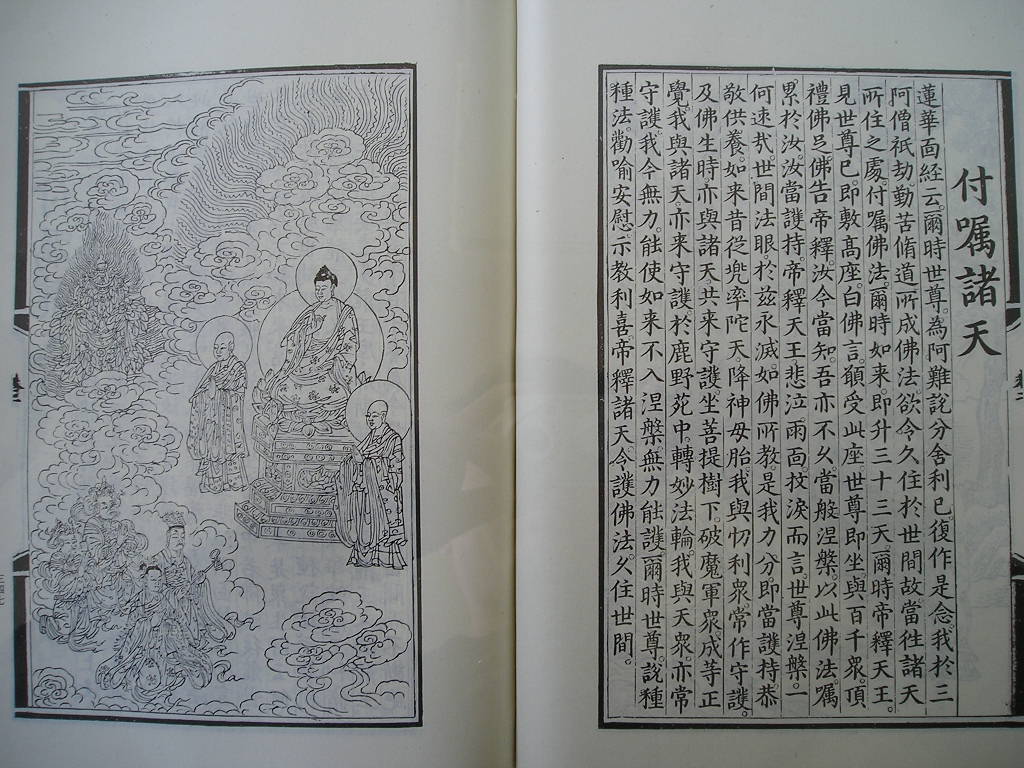 付嘱諸天
蓮華面経云。爾時世尊。為阿難說分舍利已。復作是念。我於三
阿僧祇劫。勤苦脩道。所成佛法。欲令久住於世間故。當往諸天
所住之處。付嘱佛法。爾時如来即升三十三天。爾時帝釋天王。
見世尊已。即敷髙座。白佛言。願受此座。世尊即坐。與百千衆。頂
禮佛足。佛告帝釋。汝今當知。吾亦不久。當般涅槃。以此佛法嘱
累於汝。汝當護持。帝釋天王悲泣雨面。抆淚而言。世尊涅槃。一
何速哉。世間法眼。於茲永滅。如佛所教。是我力分。即當護持恭
敬供養。如来昔從兠率陀天。降神母胎。我與忉利衆。常作守護。
及佛生時。亦與諸天共来守護。坐菩提樹下。破魔軍衆。成等正
覺。我與諸天。亦来守護。於鹿野苑中。轉妙法輪。我與天衆。亦常
守護。我今無力。能使如来不入涅槃。無力能護。爾時世尊。說種
種法。勸喻安慰。示教利喜。帝釋諸天。令護佛法。久住世間。